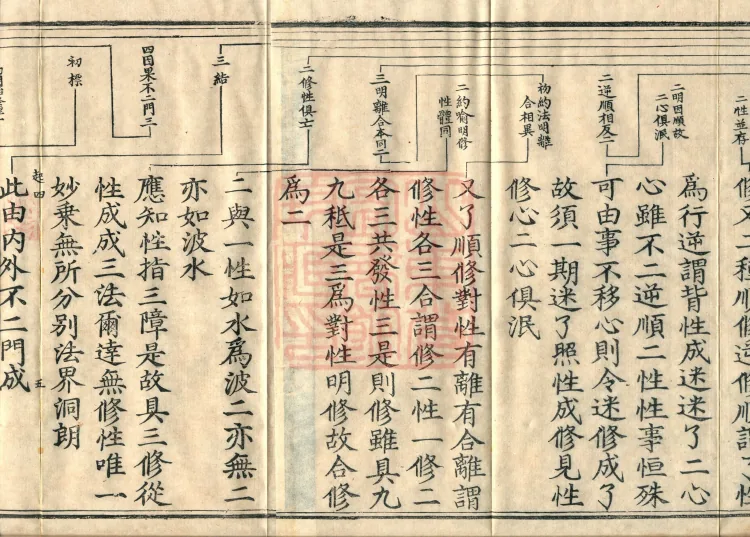 二性並存
修又二種順修逆修順謂了性
二明因順故
二心俱泯
爲行逆謂背性成迷迷了二心
心雖不二逆順二性性事恒殊
二逆順相反二
可由事不移心則令迷修成了
故須一期迷了照性成修見性
修心二心俱泯
初約法明離
合相異
又了順修對性有離有合離謂
二約喻明修
性體同
修性各三合謂修二性一修二
三明離合本同二
各三共發性三是則修雖具九
九秖是三爲對性明修故合修
爲二
二修性俱亡
二與一性如水爲波二亦無二
亦如波水
三結
應知性指三障是故具三修從
性成成三法爾達無修性唯一
四因果不二門三
妙乘無所分别法界洞朗
初標
此由内外不二門成
五